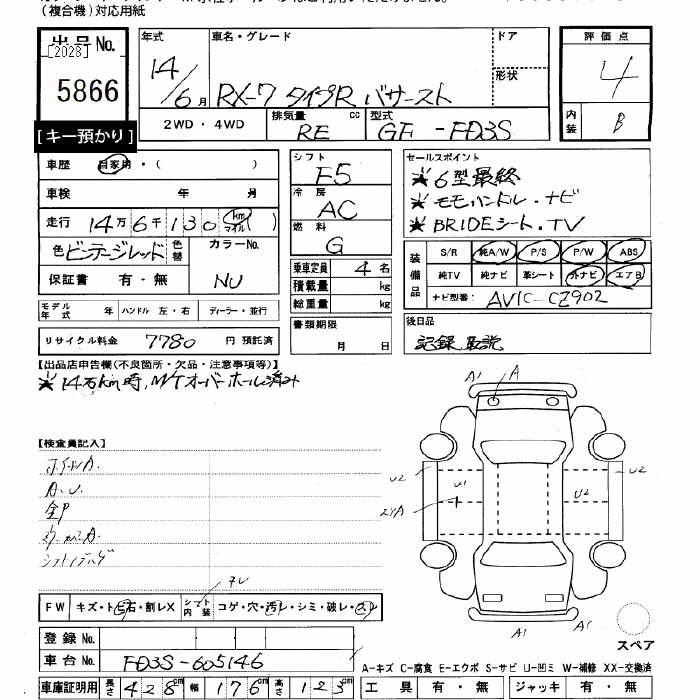 (複合機)対応用紙
出品No.
[2028]
5866
[キー預かり]
年式 14/6月
車名・グレード RX-7 タイプR バサースト
ドア
形状
評価点 4
内装 B
2WD・4WD 排気量 RE cc 型式 GF-FD3S
車歴 自家用・( )
車検 年 月
走行 14万6千130 km マイル ( )
色 ビンテージレッド 色替 カラーNo. NU
保証書 有・無
モデル年式 年 ハンドル 左・右 ディーラー・並行
リサイクル料金 7780 円 預託済
シフト F5
冷房 AC
燃料 G
乗車定員 4名
積載量 kg
総重量 kg
書類期限 月 日
セールスポイント
★6型最終
★モモハンドル・ナビ
★BRIDEシート.TV
装備品 S/R 純A/W P/S P/W ABS
純TV 純ナビ 革シート 外ナビ エアB
ナビ型番: AVIC-CZ902
後日品
記録 取説
【出品店申告欄(不良箇所・欠品・注意事項等)】
★14万km時,M/Tオーバーホール済み
【検査員記入】
A.U.
A1 A
U2 U1 U2 U2
A1 A1
FW キズ・トビ石・割レX シフト内装 コゲ・穴・汚レ・シミ・破レ・スレ
登録No.
車台No. FD3S-605146
車庫証明用 長さ 428cm 幅 176cm 高さ 123cm
スペア
A-キズ C-腐食 E-エクボ S-サビ U-凹ミ W-補修 XX-交換済
工具 有・無 ジャッキ 有・無